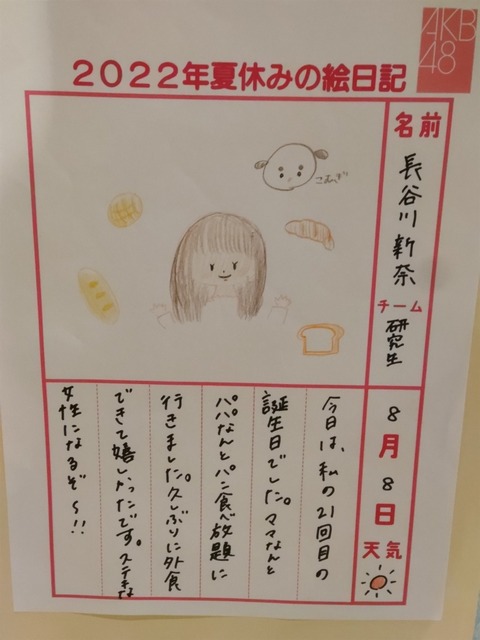 AKB
48
2022年夏休みの絵日記
名前
長谷川新奈
チーム
研究生
こむぎ
8月8日
天気
今日は、私の21回目の
誕生日でした。ママなんと
パパなんとパン食べ放題に
行きました。久しぶりに外食
できて嬉しかったです。ステキな
女性になるぞ〜!!